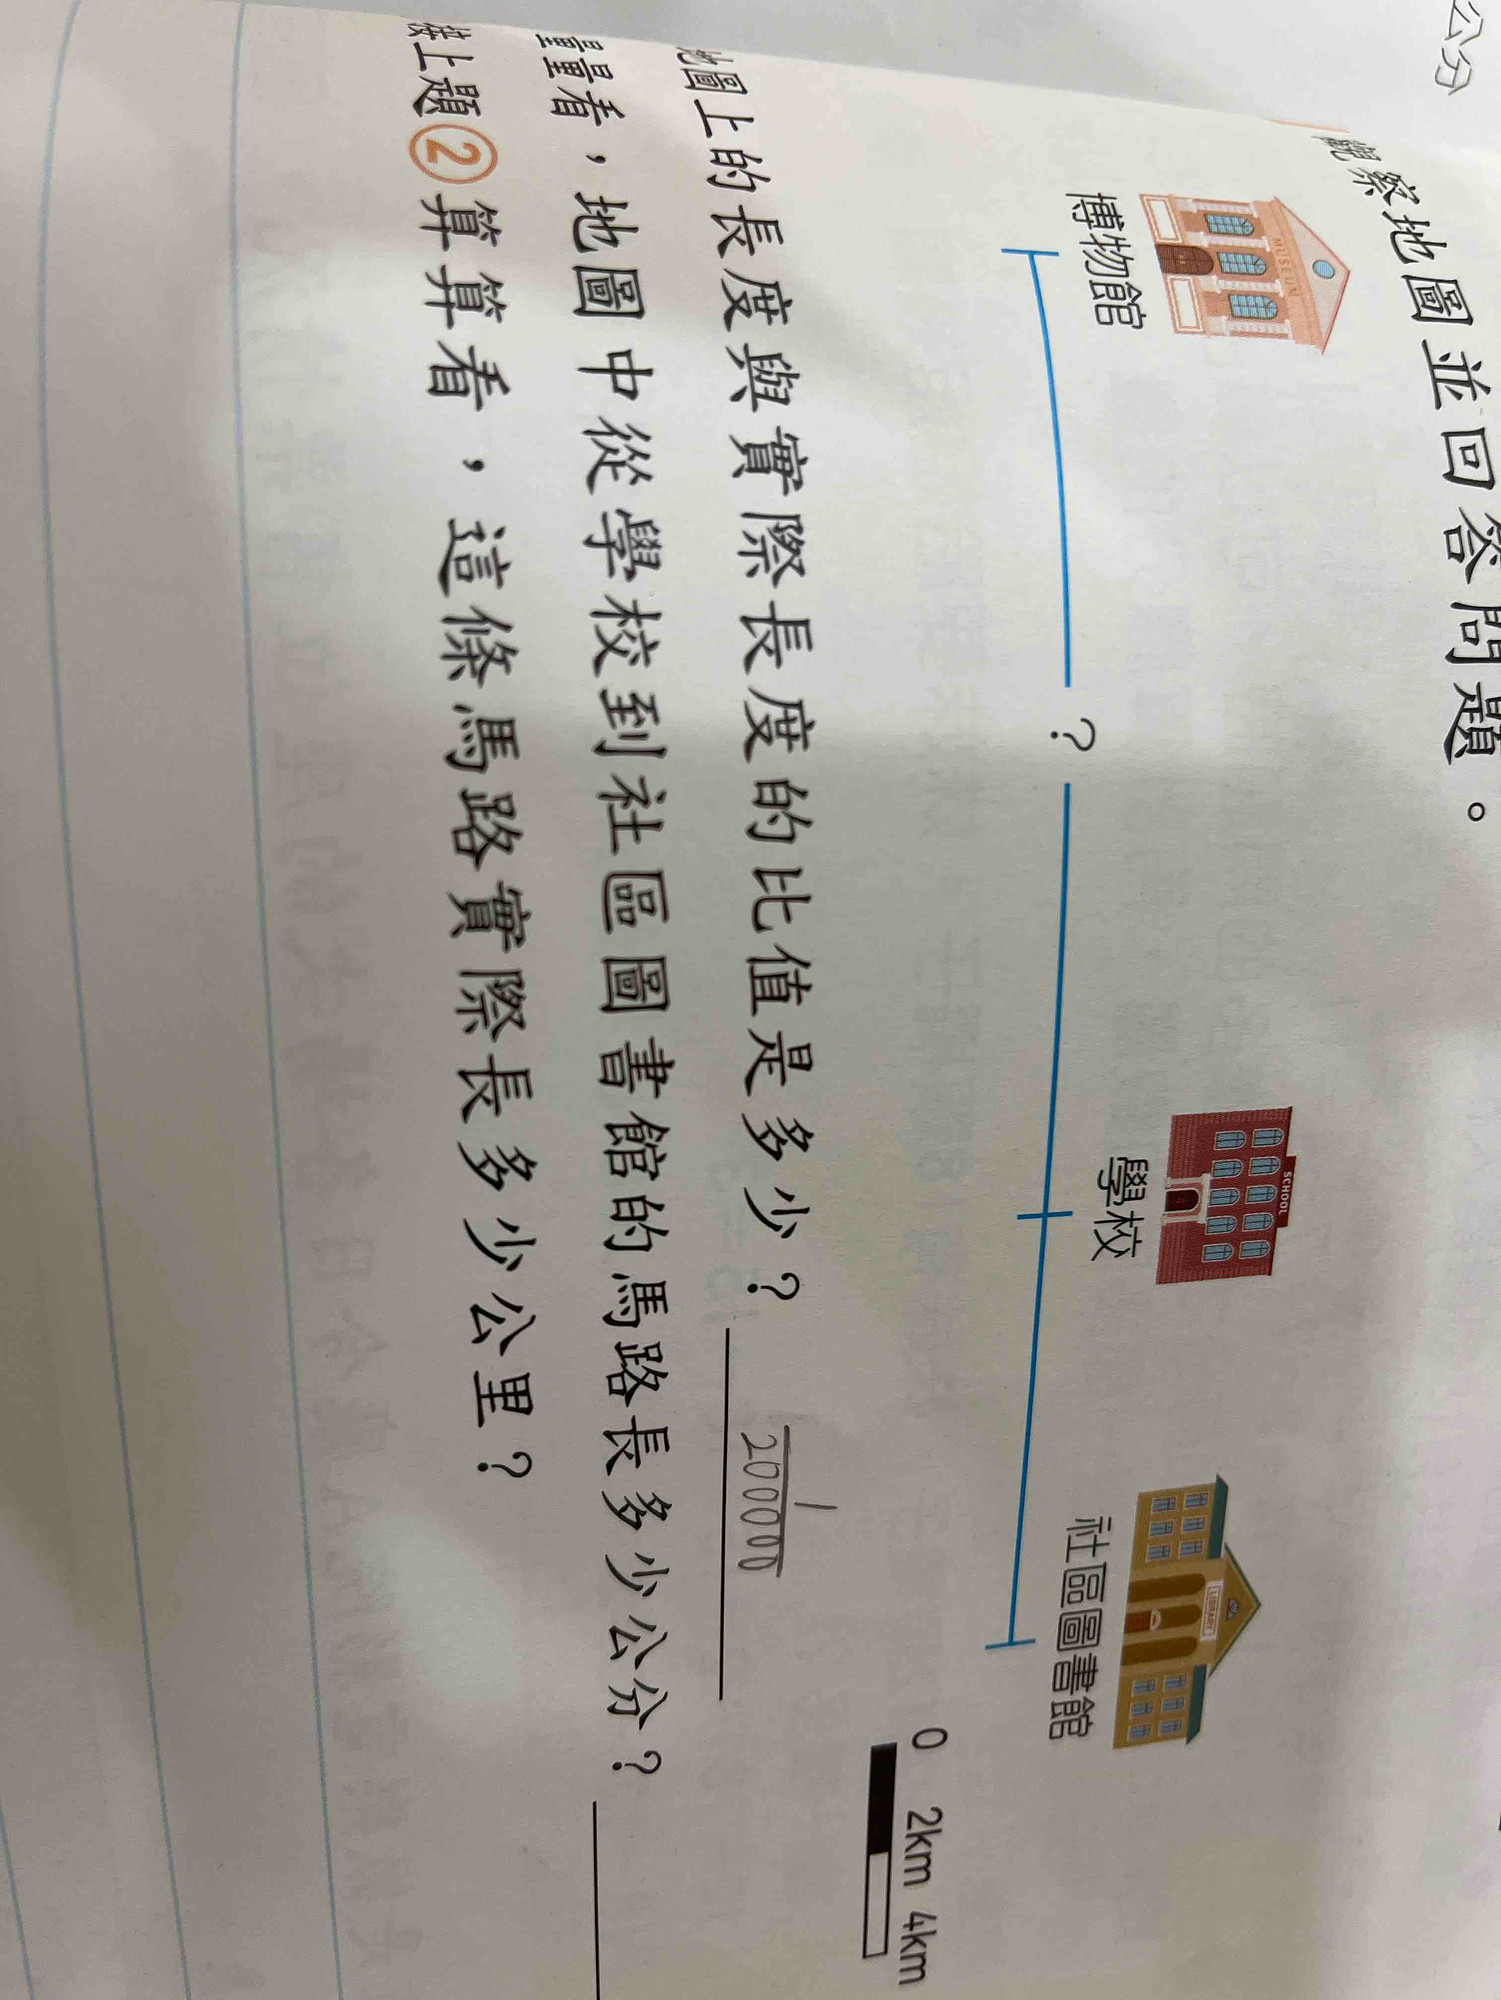 公分
觀察地圖並回答問題。
MUSEUM
SCHOOL
LIBRARY
博物館
學校
社區圖書館
?
0 2km 4km
地圖上的長度與實際長度的比值是多少? 1/2000000
量量看,地圖中從學校到社區圖書館的馬路長多少公分?
接上題②算算看,這條馬路實際長多少公里?